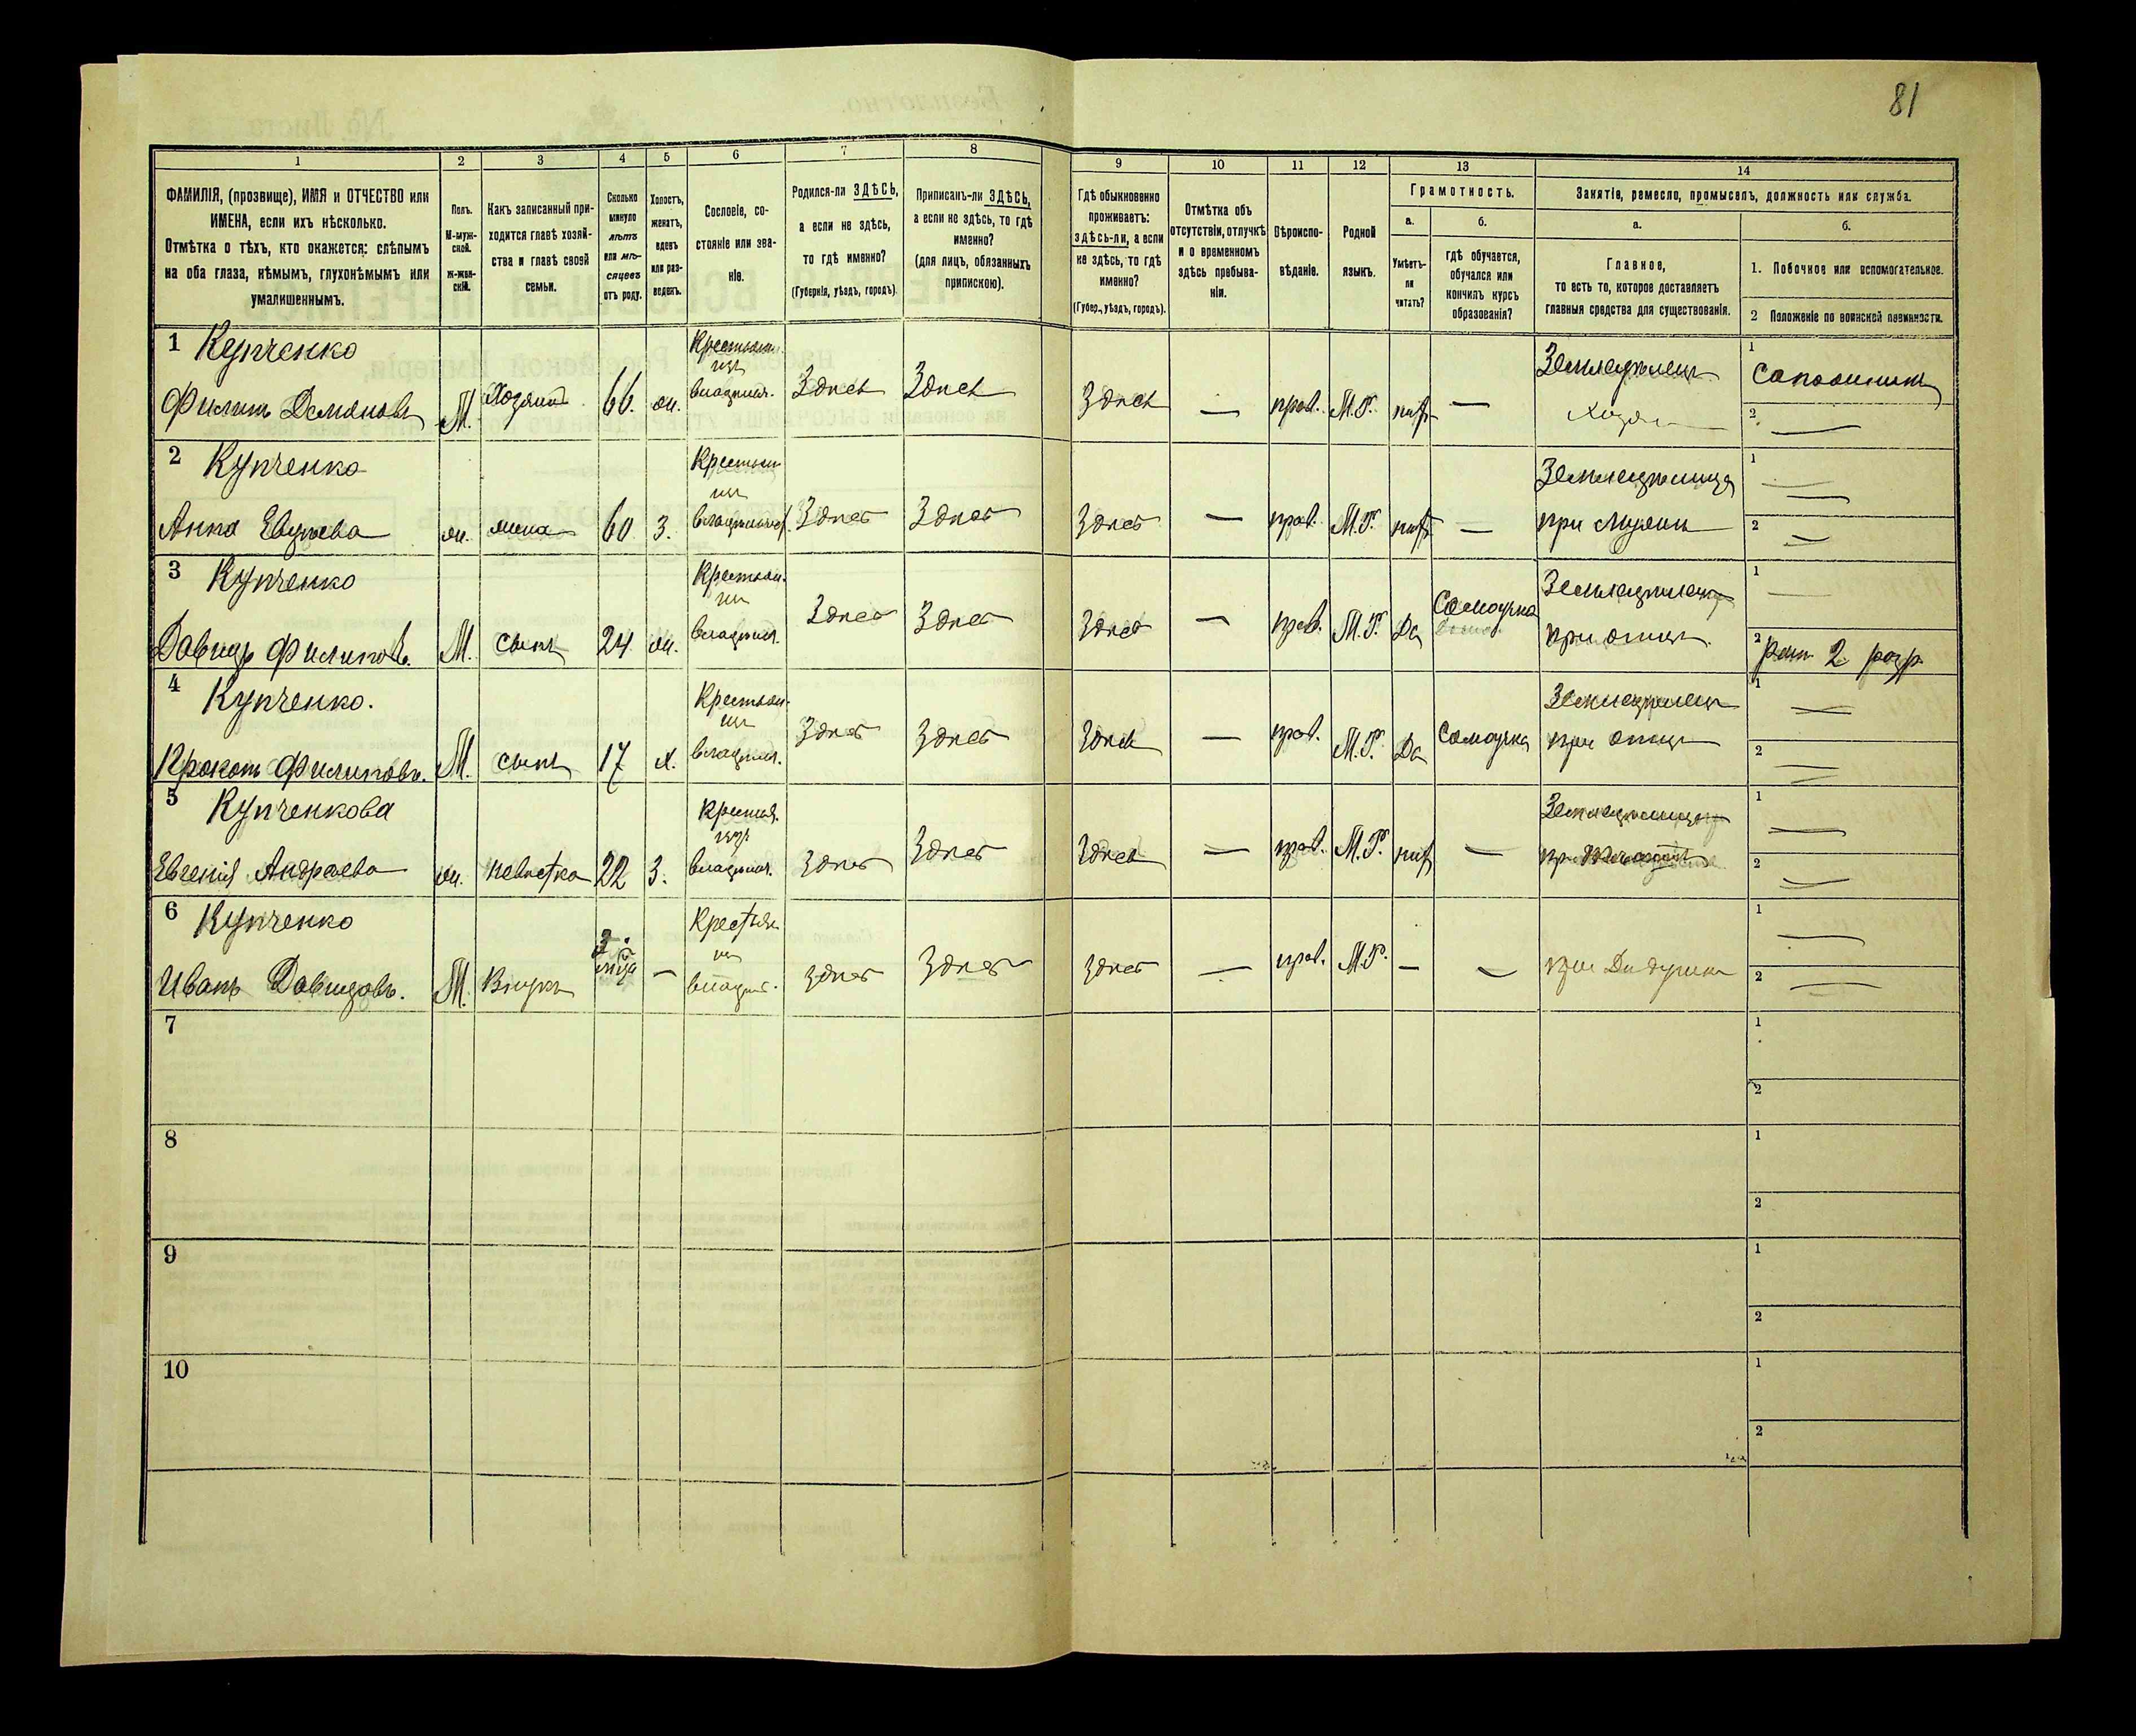 81
1 2 3 4 5 6 7 8 9 10 11 12 13 14
ФАМИЛІЯ, (прозвище), ИМЯ и ОТЧЕСТВО или
ИМЕНА, если ихъ нѣсколько.
Отмѣтка о тѣхъ, кто окажется: слѣпымъ
на оба глаза, нѣмымъ, глухонѣмымъ или
умалишеннымъ.
Полъ.
М-муж-
ской.
ж-жен-
скій.
Какъ записанный при-
ходится главѣ хозяй-
ства и главѣ своей
семьи.
Сколько
минуло
лѣтъ
или мѣ-
сяцевъ
отъ роду.
Холостъ,
женатъ,
вдовъ
или раз-
веденъ.
Сословіе, со-
стояніе или зва-
ніе.
Родился-ли ЗДѢСЬ,
а если не здѣсь,
то гдѣ именно?
(Губернія, уѣздъ, городъ).
Приписанъ-ли ЗДѢСЬ,
а если не здѣсь, то гдѣ
именно?
(для лицъ, обязанныхъ
припискою).
Гдѣ обыкновенно
проживаетъ:
здѣсь-ли, а если
не здѣсь, то гдѣ
именно?
(Губер., уѣздъ, городъ).
Отмѣтка объ
отсутствіи, отлучкѣ
и о временномъ
здѣсь пребыва-
ніи.
Вѣроиспо-
вѣданіе.
Родной
языкъ.
Грамотность.
а.
Умѣетъ-
ли
читать?
б.
гдѣ обучается,
обучался или
кончилъ курсъ
образованія?
Занятіе, ремесло, промыселъ, должность или служба.
а.
Главное,
то есть то, которое доставляетъ
главныя средства для существованія.
б.
1. Побочное или вспомогательное.
2 Положеніе по воинской повинности.
1 Купченко
Филипъ Демяновъ М. Хозяинъ 66. ж. Крестьян. владѣльч. Здѣсь Здѣсь Здѣсь — прав. М.Р. нѣт — Земледѣлецъ
Хозя
1
2 —
2 Купченко
Анна ж. жена 60 з. Здѣсь Здѣсь Здѣсь — прав. М.Р. нѣт — Земледѣлица
при мужѣ
1 —
2 —
3 Купченко
Давидъ Филиповъ. М. сынъ 24 ж. Здѣсь Здѣсь Здѣсь — прав. М.Р. Да Самоучка Земледѣлецъ
при отцѣ
1 —
2 Рат 2 разр
4 Купченко.
Прокопъ Филиповъ. М. сынъ 17 х. Здѣсь Здѣсь Здѣсь — прав. М.Р. Да Самоучка Земледѣлецъ
при отцѣ
1 —
2 —
5 Купченкова
Евгенія Андреева ж. невѣстка 22 з. Здѣсь Здѣсь Здѣсь — прав. М.Р. нѣт — Земледѣлица
1 —
2 —
6 Купченко
Иванъ Давидовъ. М. Внукъ 3 — Здѣсь Здѣсь Здѣсь — прав. М.Р. — — при Дѣдушкѣ
1 —
2 —
7
1
2
8
1
2
9
1
2
10
1
2